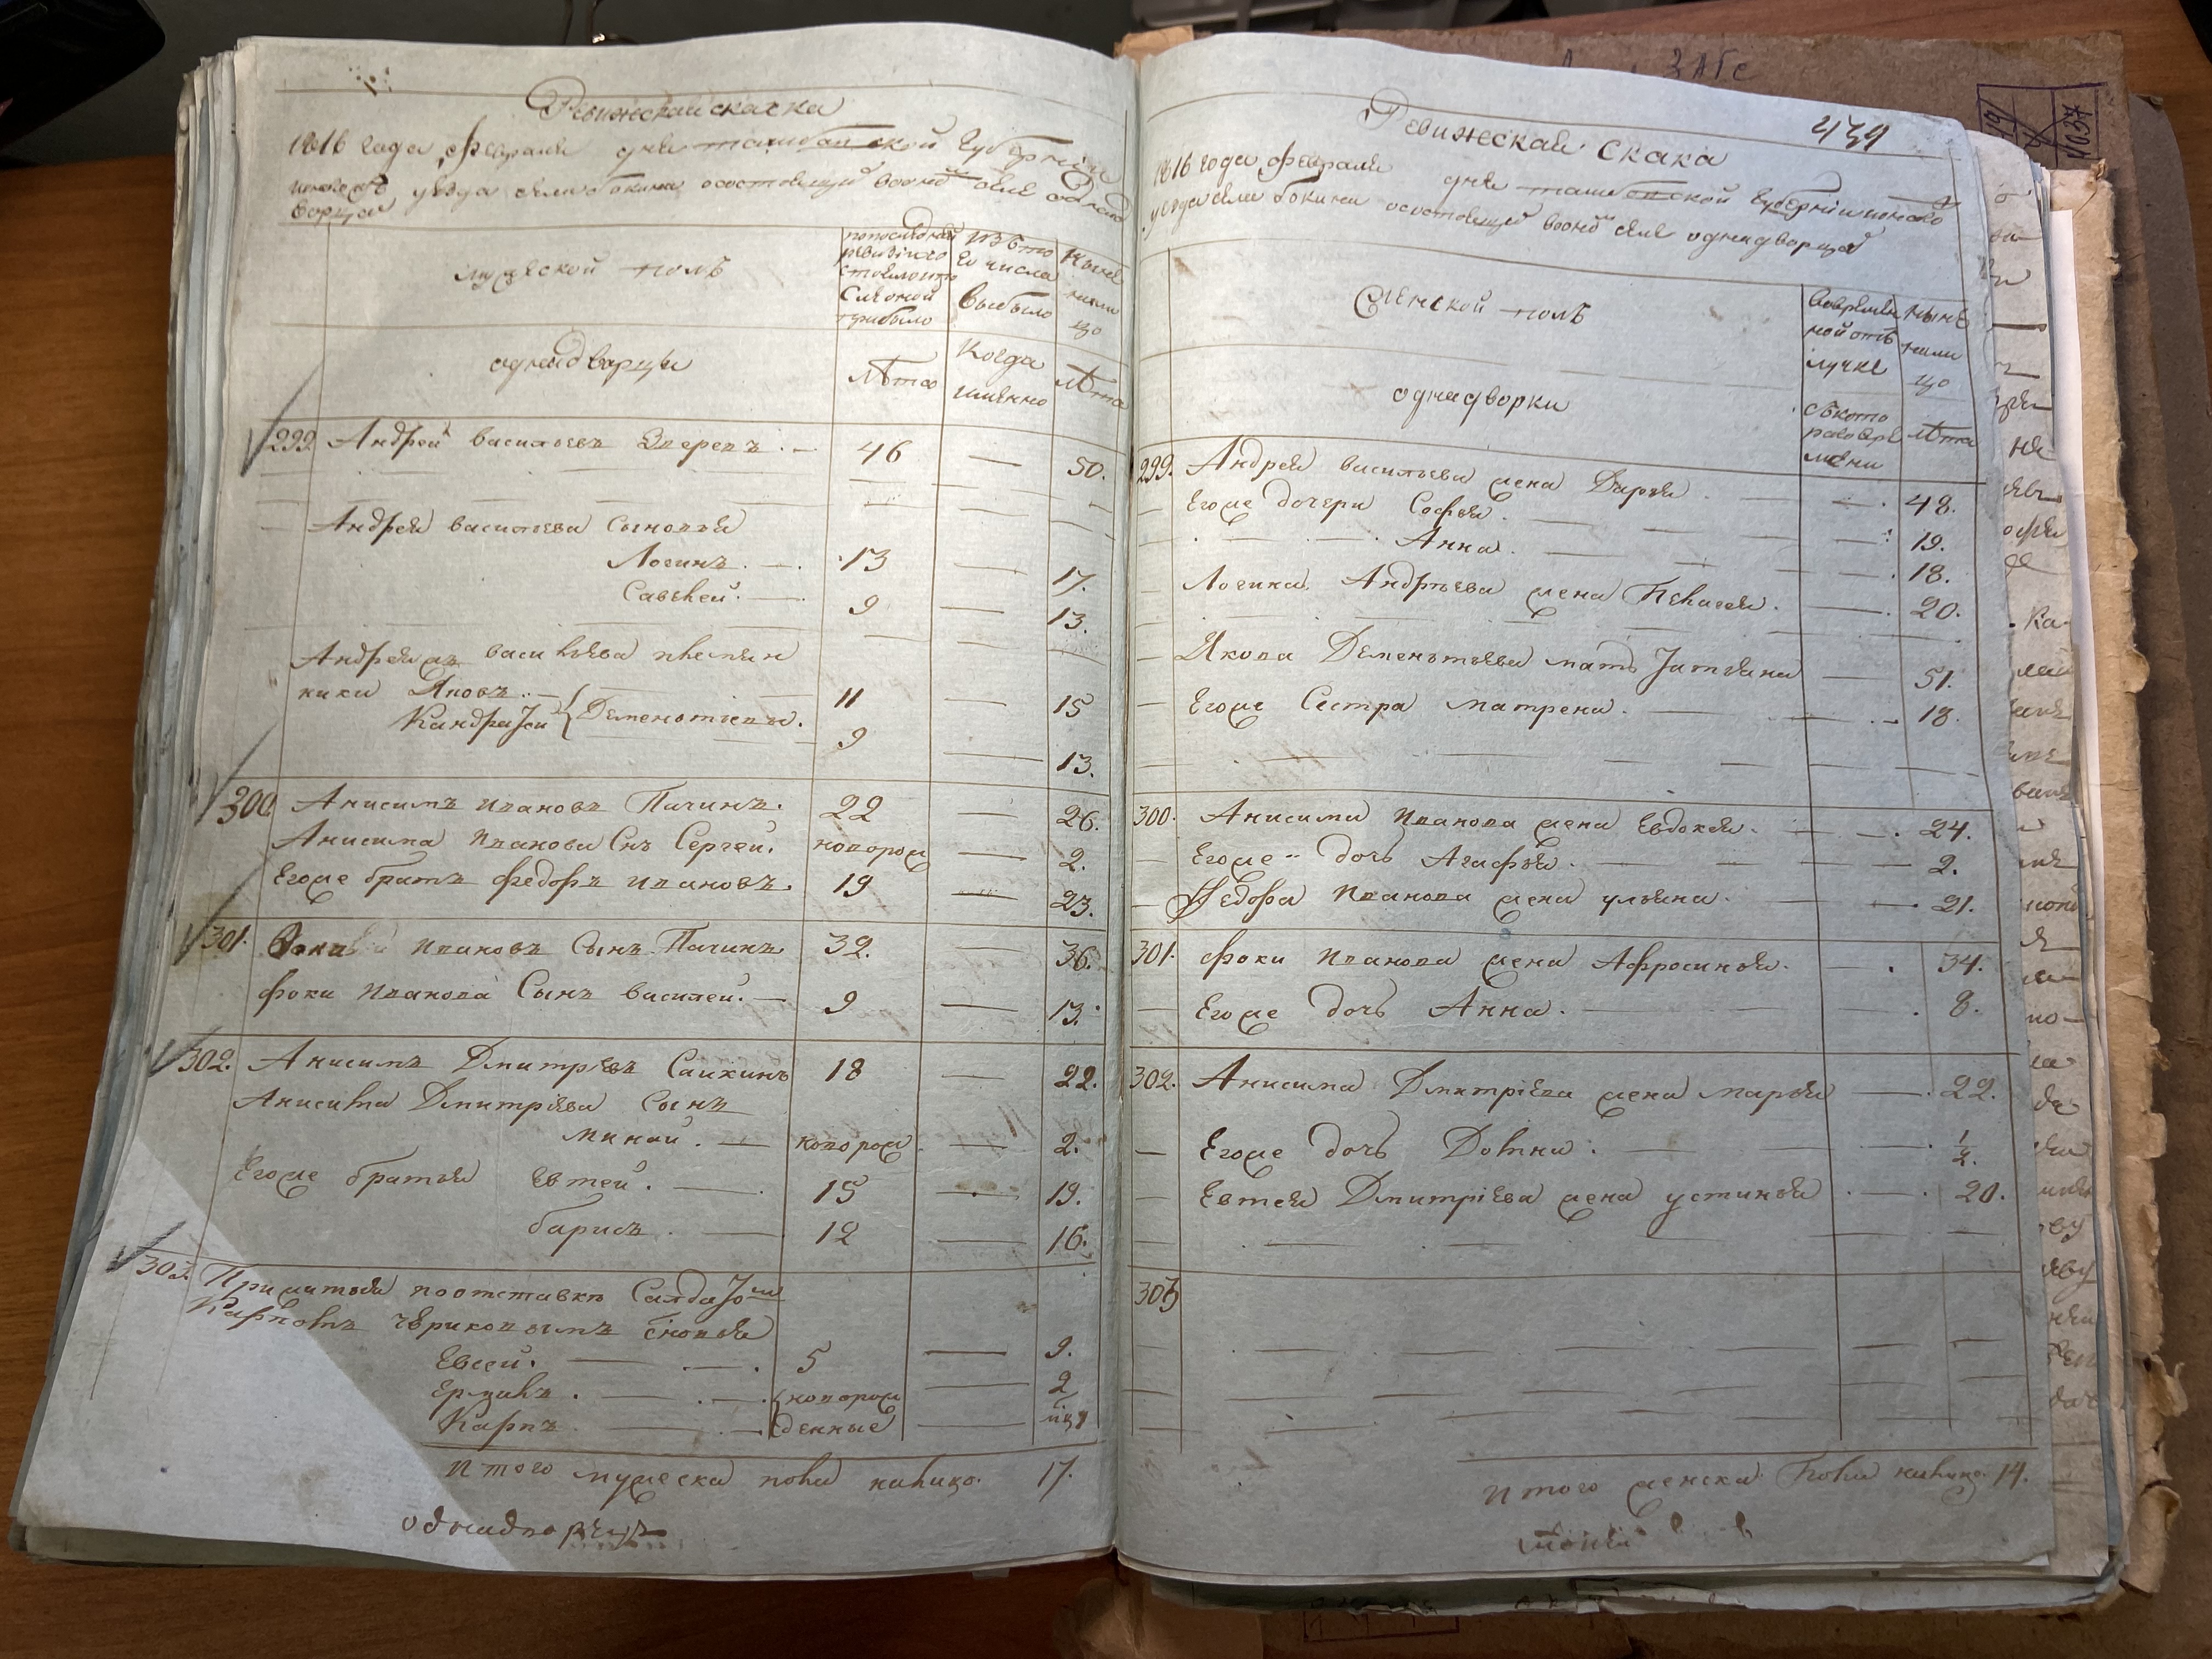 Ревижская скаска
1816 года февраля дня танибовской губернии
уезда села бокина осостоящих воонъ селе однод
ворца
мужеской полъ
попоследней
ревизии
состоялоито
слеоной
прибыло
изъто
го числа
выбыло
ныне
нали
цо
однодварцы
лѣта
Когда
имянно
лѣта
299. Андрей васильевъ Зверевъ. — 46 — 50.
Андрея васильева сыновья
Логинъ. — 13 — 17.
Савелей. — 9 — 13.
Андрея васильева племян
ники Яковъ. — 11 — 15
Кандратей } Дементьевы. 9 — 13.
300. Анисимъ Ивановъ Пачинъ. 22 — 26.
Анисима Иванова Снъ Сергей. новорож — 2.
Егоже братъ федоръ Ивановъ. 19 — 23.
301. Фока Ивановъ Сынъ Пачинъ 32. — 36.
фоки Иванова Сынъ василей. — 9 — 13.
302. Анисимъ Дмитрѣевъ Саихинъ 18 — 22.
Анисима Дмитриева Сынъ
Минай. — новорож — 2.
Егоже братья Евтей. — 15 — 19.
барисъ. — 12 — 16.
303. Прижитыя поотставкѣ Салдатом
Карповъ чериковымъ сновья
Евсей. — 5 — 9.
Карпъ — денные —
Итого мужеска пола налицо. 17.
однадворецъ
439
Ревижская Скака
1816 года февраля дня губернии
уезда села бокина осостоящих воонъ селе однадворцах
Женской полъ
вовремен
ной отъ
лучке
ныне
нали
цо
однадворки
съкото
лѣта
299. Андрея васильева жена Дарья. — 48.
Егоже дочери Софья. — 19.
Анна. — 18.
Логина Андрѣева жена Пелагея. — 20.
Якова Дементьева мать Татьяна — 51.
Егоже Сестра матрена. — 18.
300. Анисима Иванова жена Евдокея. — 24.
Егоже дочь Агафья. — 2.
Федора Иванова жена ульяна. — 21.
301. фоки Иванова жена Афросинья. — 34.
Егоже дочь Анна. — 8.
302. Анисима Дмитрiева жена марья — 22.
Егоже дочь Домна. — ½.
Евтея Дмитрiева жена устинья. — 20.
303
Итого женска пола налицо. 14.
ЗАГС
4037